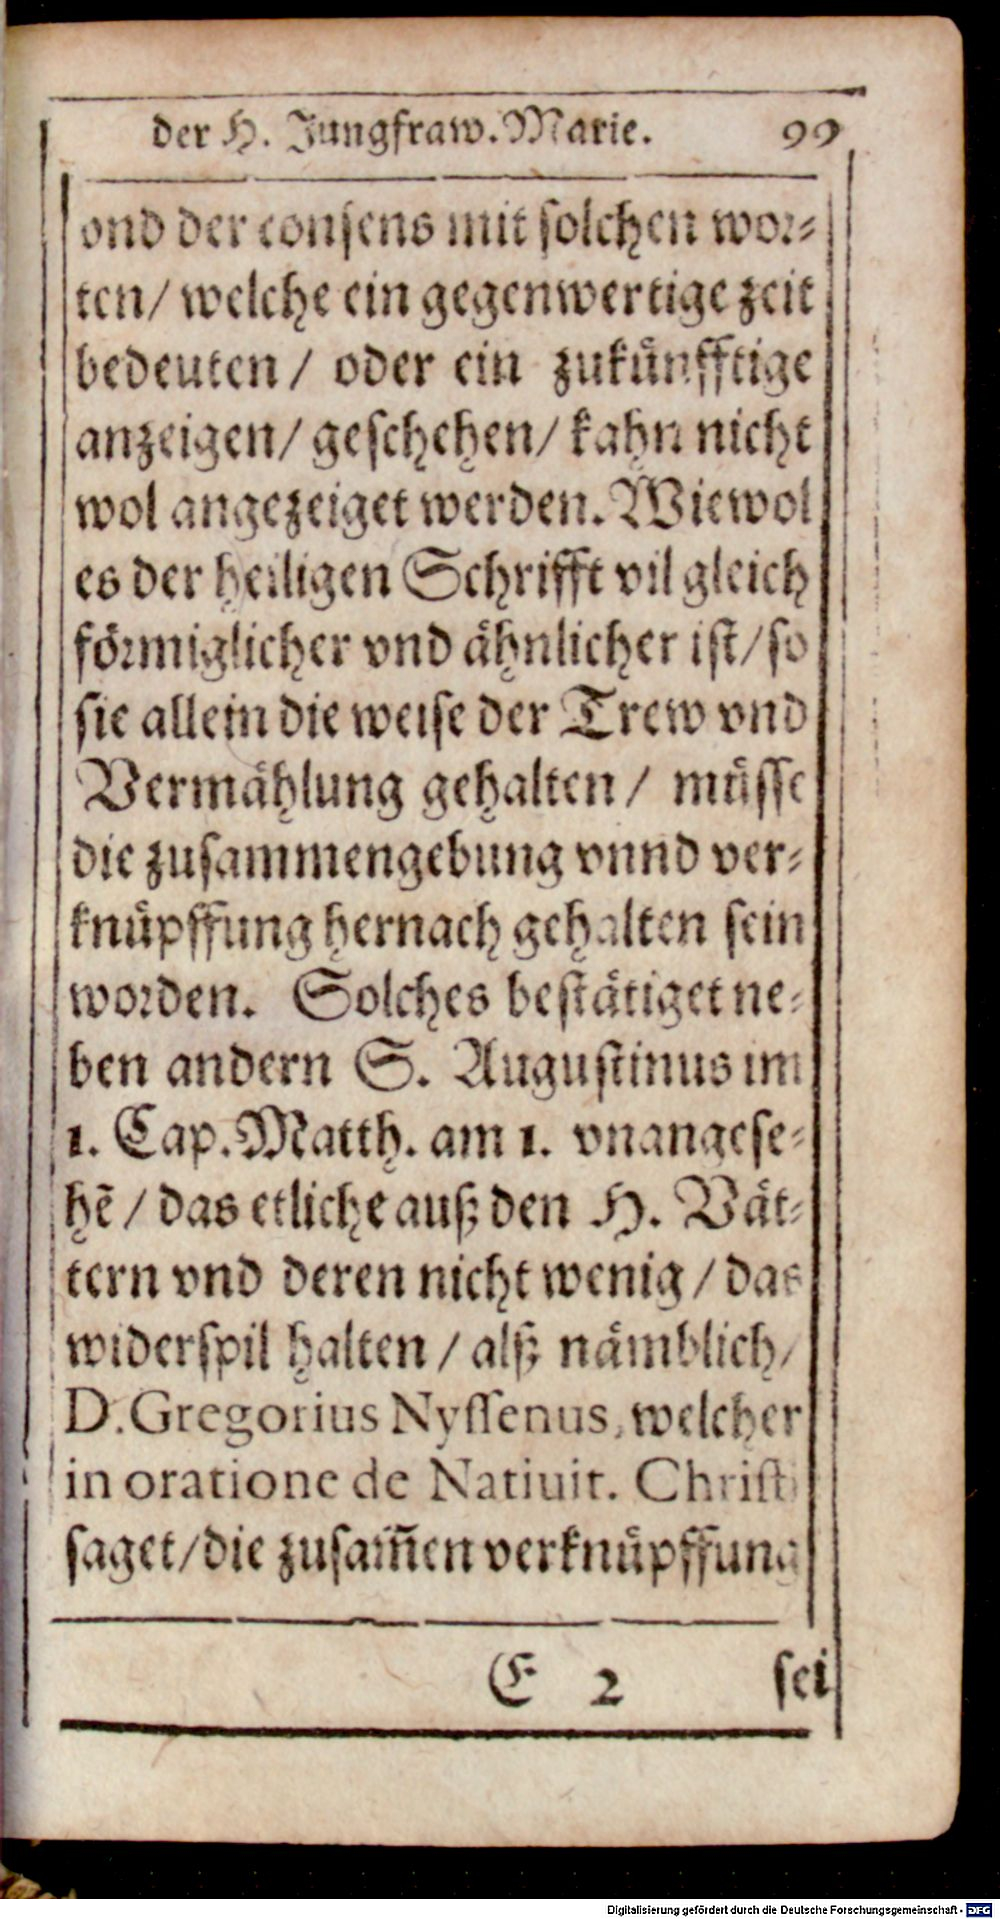 der H. Jungfraw. Marie. 99
vnd der consens mit solchen wor-
ten/ welche ein gegenwertige zeit
bedeuten / oder ein zukünfftige
anzeigen/ geschehen/ kahn nicht
wol angezeiget werden. Wiewol
es der heiligen Schrifft vil gleich
förmiglicher vnd ähnlicher ist/ so
sie allein die weise der Trew vnd
Vermählung gehalten / müsse
die zusammengebung vnnd ver-
knüpffung hernach gehalten sein
worden. Solches bestätiget ne-
ben andern S. Augustinus im
1. Cap. Matth. am 1. vnangese-
hē / das etliche auß den H. Vät-
tern vnd deren nicht wenig / das
widerspil halten / alß nämblich/
D. Gregorius Nyssenus, welcher
in oratione de Natiuit. Christi
saget/ die zusam̄en verknüpffung
E 2 sei
Digitalisierung gefördert durch die Deutsche Forschungsgemeinschaft - DFG